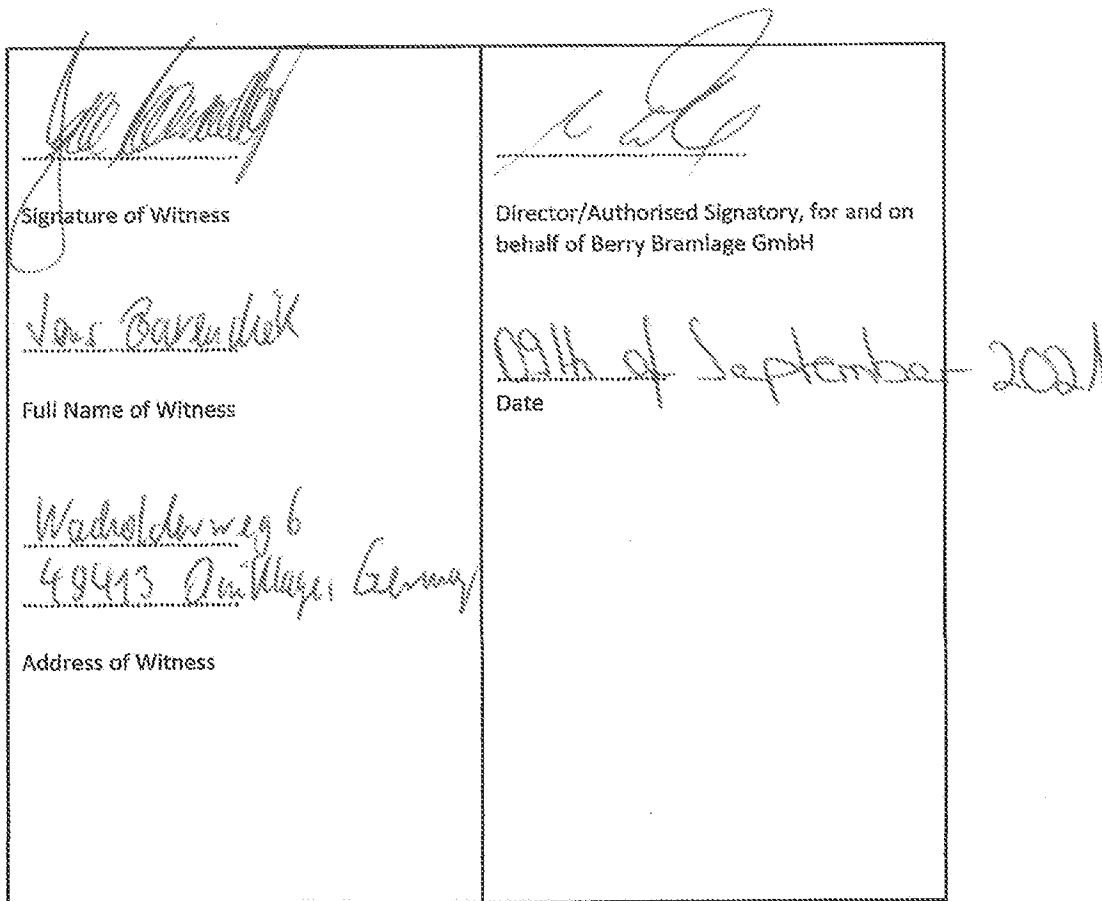 Signature of Witness
Jens Bavendiek
Full Name of Witness
Wacholderweg 6
49413 Dinklage, Germany
Address of Witness
Director/Authorised Signatory, for and on
behalf of Berry Bramlage GmbH
09th of September 2021
Date